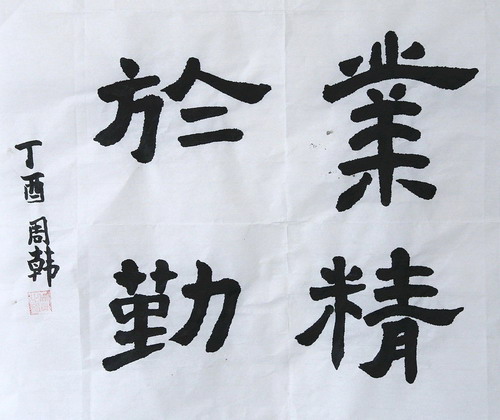 業精
於勤
丁酉 周韩